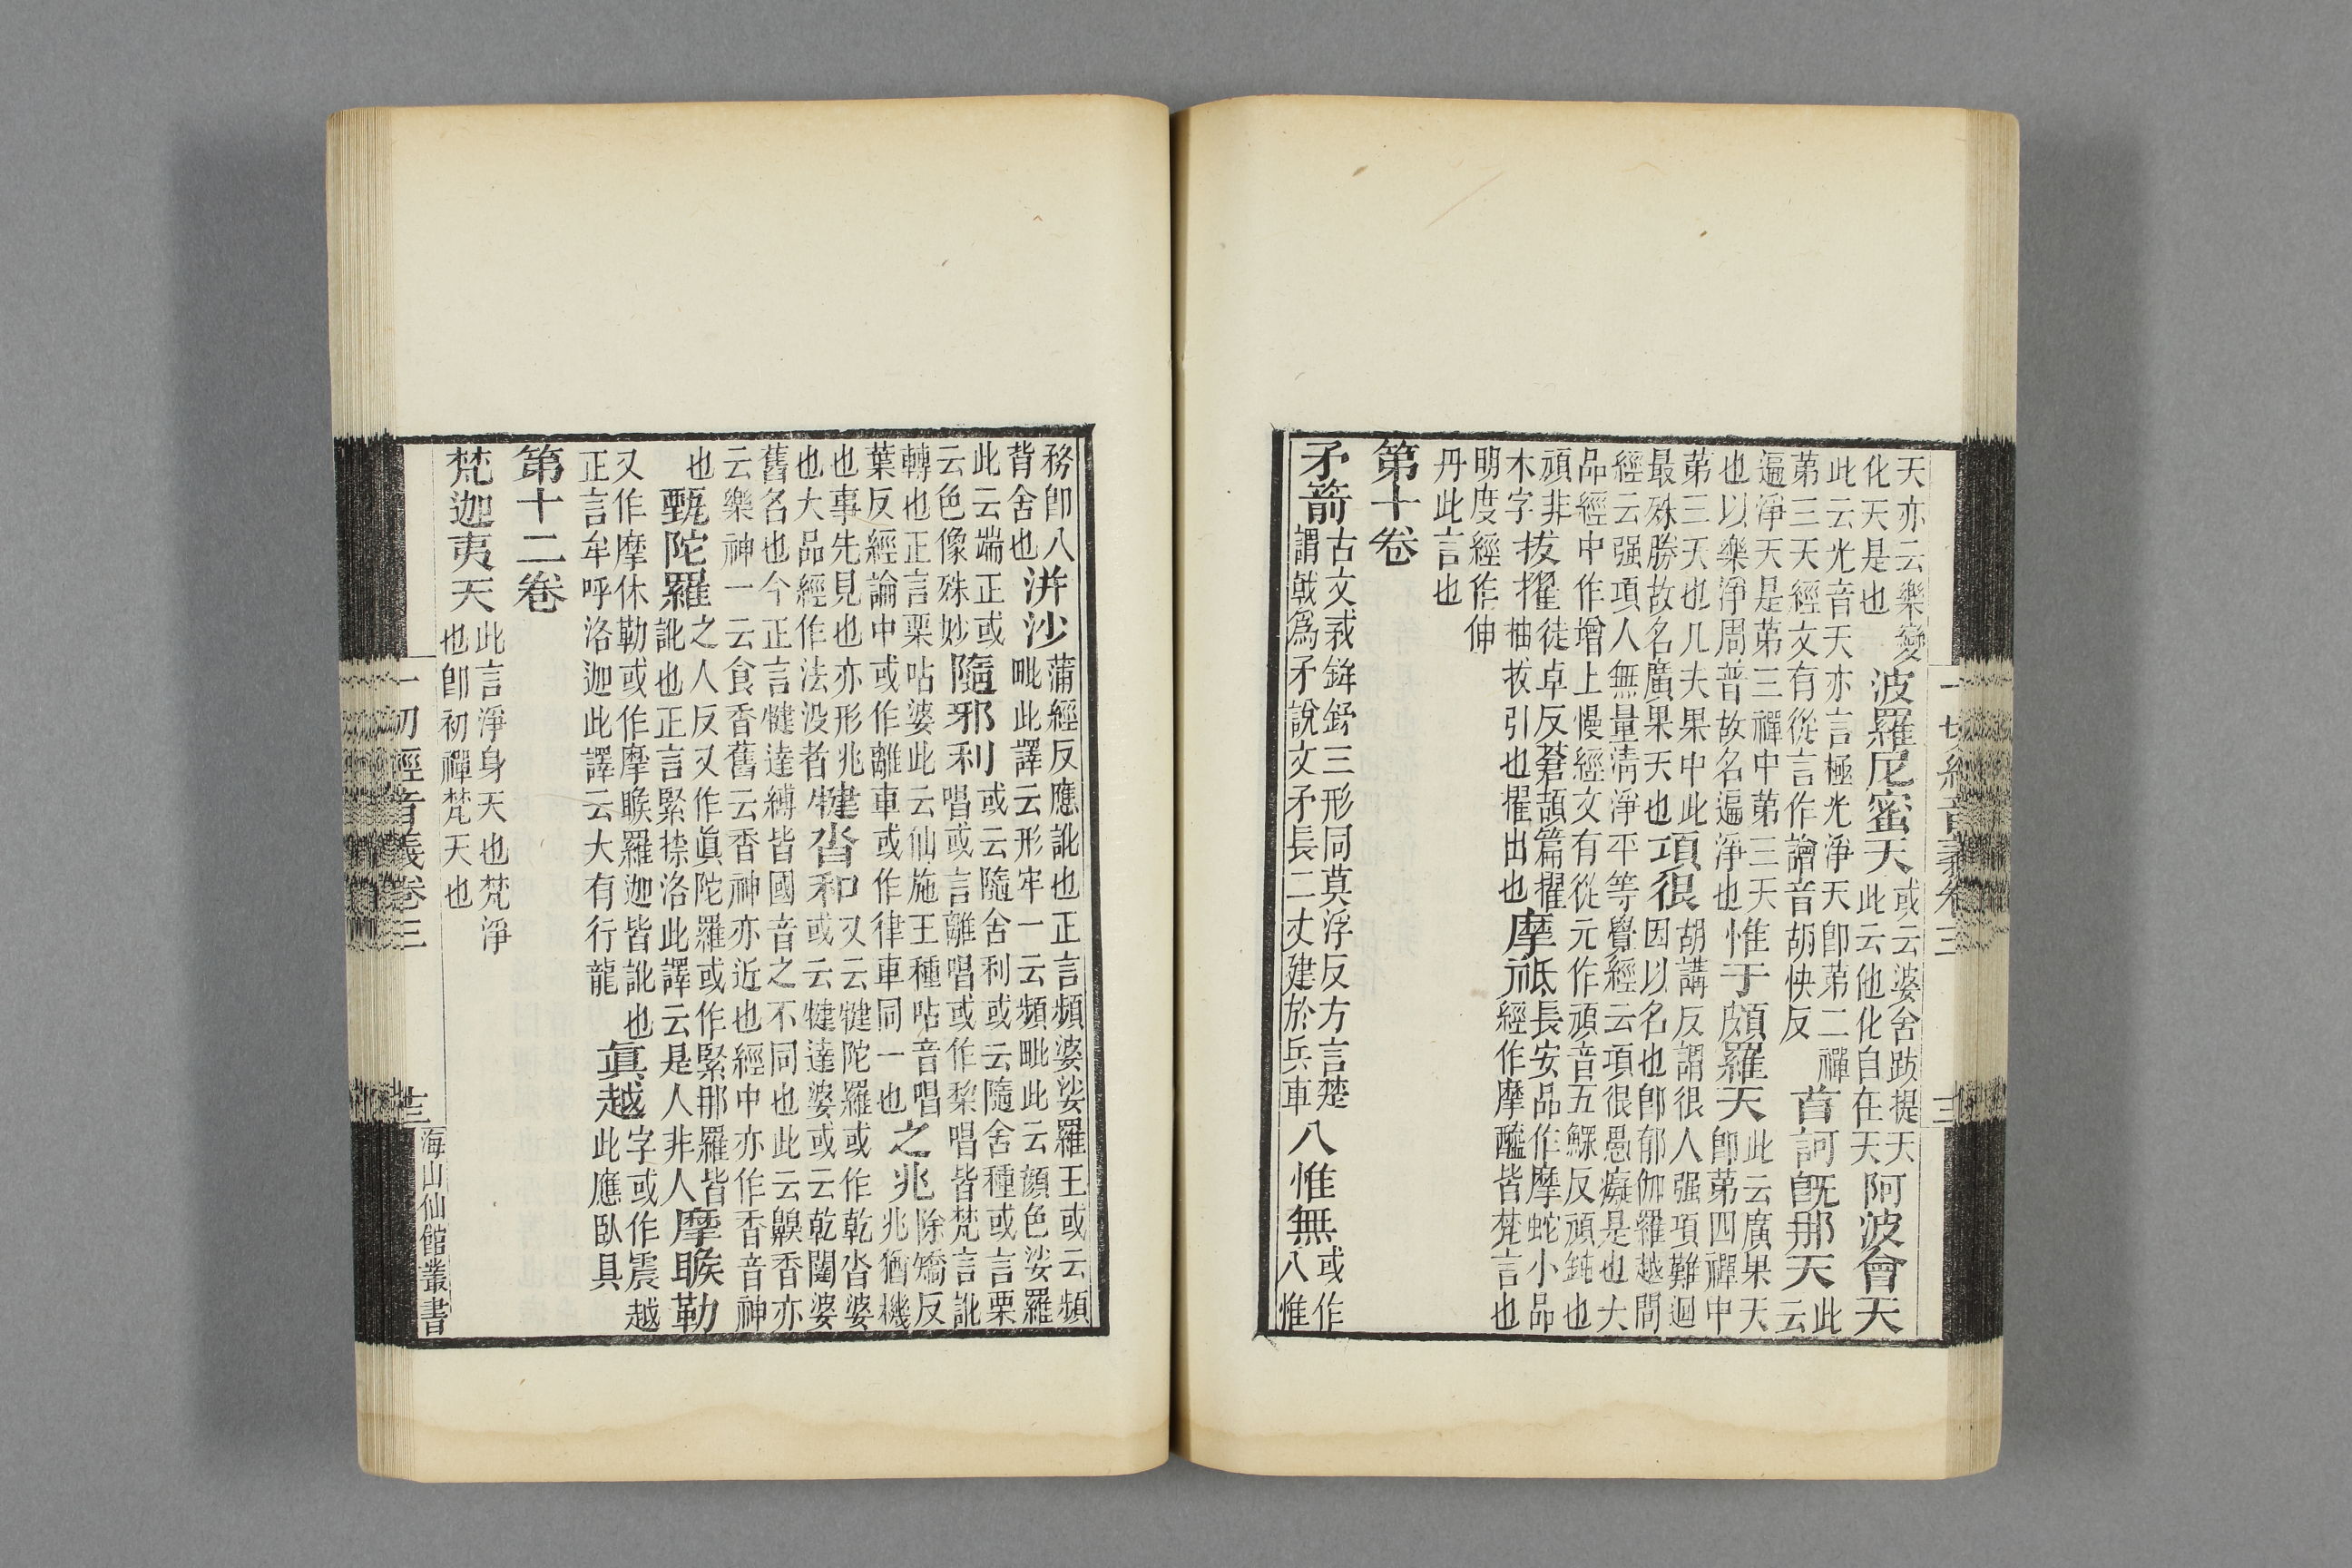 一切經音義卷三
天亦云樂變化天是也波羅尼蜜天或云婆舍跋提天此云他化自在天阿波會天
此云光音天亦言極光淨天卽第二禪第三天經文有從言作譮音胡快反首訶旣那天此云
遍淨天是第三禪中第三天也以樂淨周普故名遍淨也惟于頗羅天此云廣果天卽第四禪中
第三天也凡夫果中此最殊勝故名廣果天也項很胡講反謂很人强項難迴因以名也卽郁伽羅越問
經云强項人無量清淨平等覺經云項很愚癡是也大品經中作增上慢經文有從元作頑音五鰥反頑鈍也
頑非木字拔擢徒卓反蒼頡篇擢抽拔引也擢出也摩祇長安品作摩蛇小品經作摩醯皆梵言也
明度經作伸丹此言也
第十卷
矛箭古文鉾三形同莫浮反方言楚謂戟爲矛說文矛長二丈建於兵車八惟無或作八惟
務卽八背舍也洴沙蒲經反應訛也正言頻婆娑羅王或云頻毗此譯云形牢一云頻毗此云顏色娑羅
此云端正或云色像殊妙隨邪利或云隨舍利或云隨舍種或言栗唱或言離唱或作犂唱皆梵言訛
轉也正言栗呫婆此云仙施王種呫音唱葉反經論中或作離車或作律車同一也之兆除矯反兆猶機
也事先見也亦形兆也大品經作法没者犍沓和又云犍陀羅或作乾沓婆或云犍達婆或云乾闥婆
舊名也今正言犍達縛皆國音之不同也此云齅香亦云樂神一云食香舊云香神亦近也經中亦作香音神
也甄陀羅之人反又作眞陀羅或作緊那羅皆訛也正言緊捺洛此譯云是人非人摩睺勒
又作摩休勒或作摩睺羅迦皆訛也正言牟呼洛迦此譯云大有行龍眞越字或作震越此應臥具
第十二卷
梵迦夷天此言淨身天也梵淨也卽初禪梵天也
一切經音義卷三 十三 海山仙館叢書